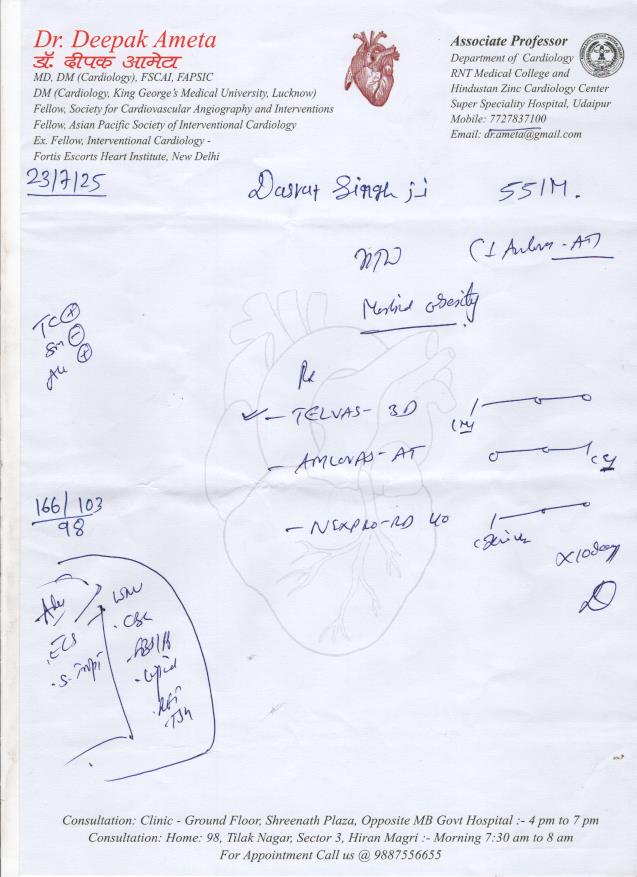 Dr. Deepak Ameta
डॉ. दीपक आमेता
MD, DM (Cardiology), FSCAI, FAPSIC
DM (Cardiology, King George's Medical University, Lucknow)
Fellow, Society for Cardiovascular Angiography and Interventions
Fellow, Asian Pacific Society of Interventional Cardiology
Ex. Fellow, Interventional Cardiology -
Fortis Escorts Heart Institute, New Delhi
Associate Professor
Department of Cardiology
RNT Medical College and
Hindustan Zinc Cardiology Center
Super Speciality Hospital, Udaipur
Mobile: 7727837100
Email: dr.ameta@gmail.com
23/7/25
Dasrat Singh ji 55/M.
Morbid obesity
Rx
- TELVAS - 3D
- AMLOVAS - AT
- NEXPRO-RD 40
x10days
166/103
98
CBC
Lipid
TSH
Consultation: Clinic - Ground Floor, Shreenath Plaza, Opposite MB Govt Hospital :- 4 pm to 7 pm
Consultation: Home: 98, Tilak Nagar, Sector 3, Hiran Magri :- Morning 7:30 am to 8 am
For Appointment Call us @ 9887556655